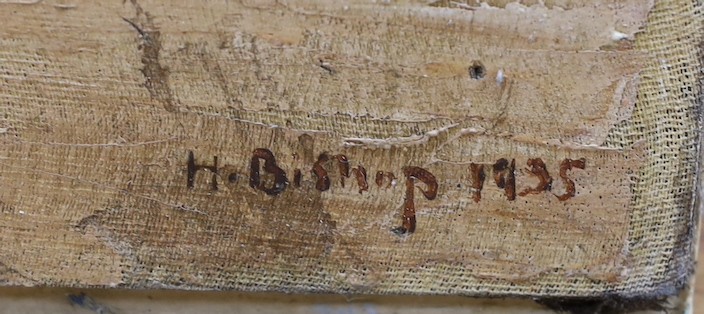 H. Bishop 1935